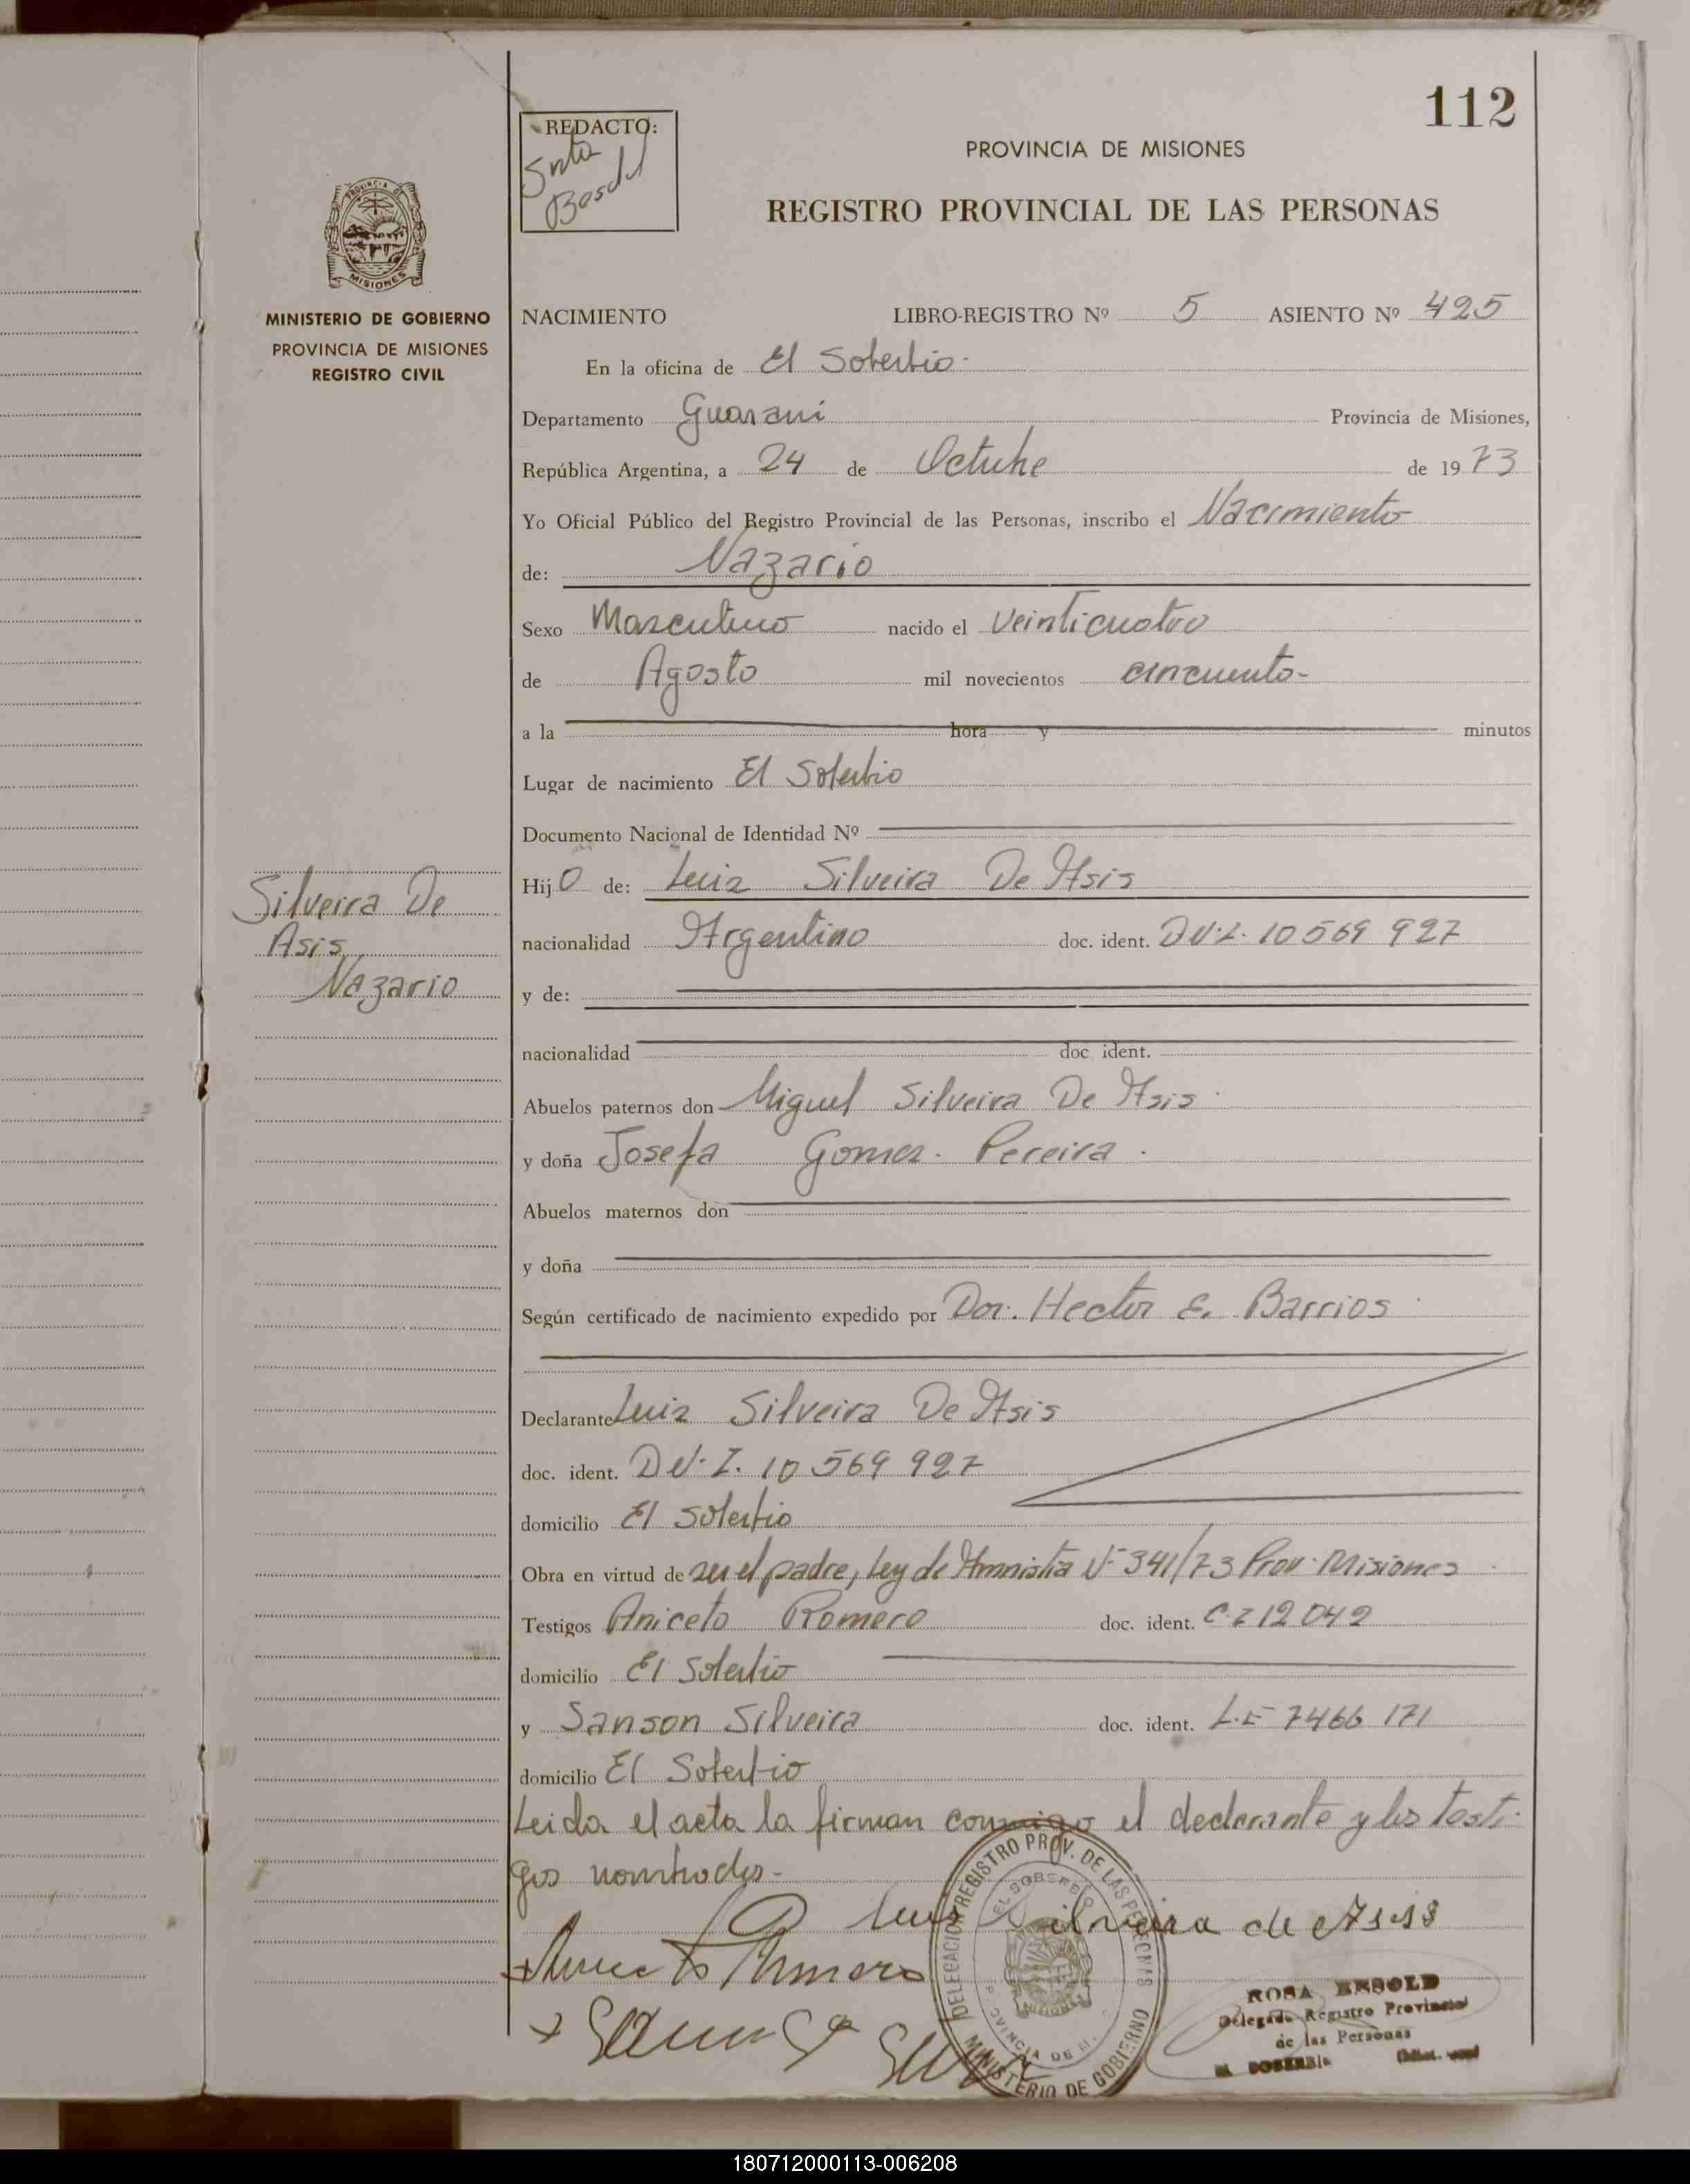 112
REDACTO:
Snta
Bosch
PROVINCIA DE MISIONES
REGISTRO PROVINCIAL DE LAS PERSONAS
PROVINCIA DE
MISIONES
MINISTERIO DE GOBIERNO
PROVINCIA DE MISIONES
REGISTRO CIVIL
NACIMIENTO LIBRO-REGISTRO Nº 5 ASIENTO Nº 425
En la oficina de El Soberbio
Departamento Guarani Provincia de Misiones,
República Argentina, a 24 de Octubre de 1973
Yo Oficial Público del Registro Provincial de las Personas, inscribo el Nacimiento
de: Nazario
Sexo Masculino nacido el veinticuatro
de Agosto mil novecientos cincuenta-
a la hora y minutos
Lugar de nacimiento El Soberbio
Documento Nacional de Identidad Nº
Silveira De
Asis
Nazario
Hijo de: Luiz Silveira De Asis
nacionalidad Argentino doc. ident. D.N.I. 10 569 927
y de:
nacionalidad doc ident.
Abuelos paternos don Miguel Silveira De Asis
y doña Josefa Gomez Pereira
Abuelos maternos don
y doña
Según certificado de nacimiento expedido por Dor. Hector E. Barrios
Declarante Luiz Silveira De Asis
doc. ident. D.N.I. 10 569 927
domicilio El Soberbio
Obra en virtud de ser el padre, Ley de Amnistia Nº 341/73 Prov. Misiones
Testigos Aniceto Romero doc. ident. C.I 12 042
domicilio El Soberbio
y Sanson Silveira doc. ident. L.E 7466 171
domicilio El Soberbio
Leida el acta la firman conmigo el declarante y los testi-
gos nombrados-
Luis Silveira de Asis
Aniceto Romero
DELEGACION REGISTRO PROV. DE LAS PERSONAS
EL SOBERBIO
PROVINCIA DE MI.
MINISTERIO DE GOBIERNO
ROSA
Delegada Registro Provincial
de las Personas
EL SOBERBIO
180712000113-006208